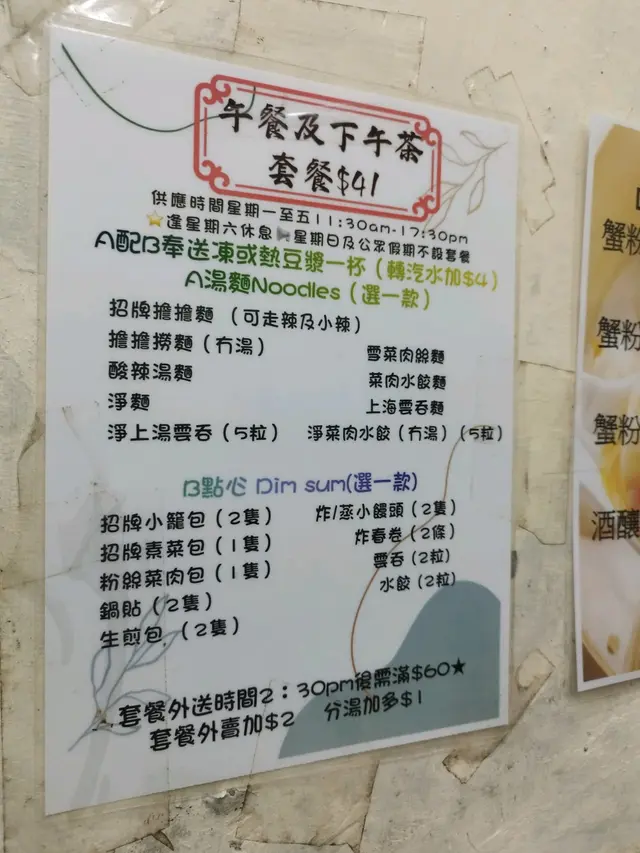 午餐及下午茶
套餐$41
供應時間星期一至五11:30am-17:30pm
逢星期六休息 星期日及公眾假期不設套餐
A配B奉送凍或熱豆漿一杯（轉汽水加$4）
A湯麵Noodles（選一款）
招牌擔擔麵 （可走辣及小辣）
擔擔撈麵（冇湯）
雪菜肉絲麵
酸辣湯麵
菜肉水餃麵
淨麵
上海雲吞麵
淨上湯雲吞（5粒）
淨菜肉水餃（冇湯）（5粒）
B點心 Dim sum(選一款)
招牌小籠包（2隻）
炸/蒸小饅頭（2隻）
招牌素菜包（1隻）
炸春卷（2條）
粉絲菜肉包（1隻）
雲吞（2粒）
鍋貼（2隻）
水餃（2粒）
生煎包（2隻）
套餐外送時間2：30pm後需滿$60★
套餐外賣加$2 分湯加多$1
蟹粉
蟹粉
蟹粉
酒釀